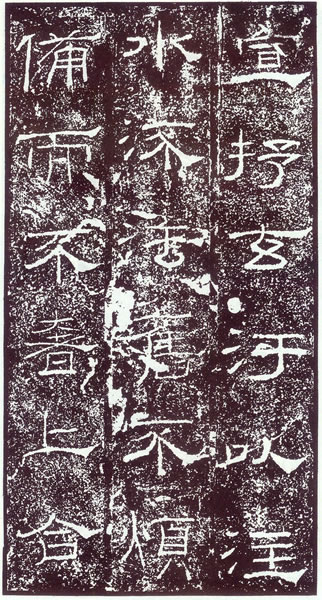 宣抒玄汙以注
水流法舊不煩
備而不奢上合